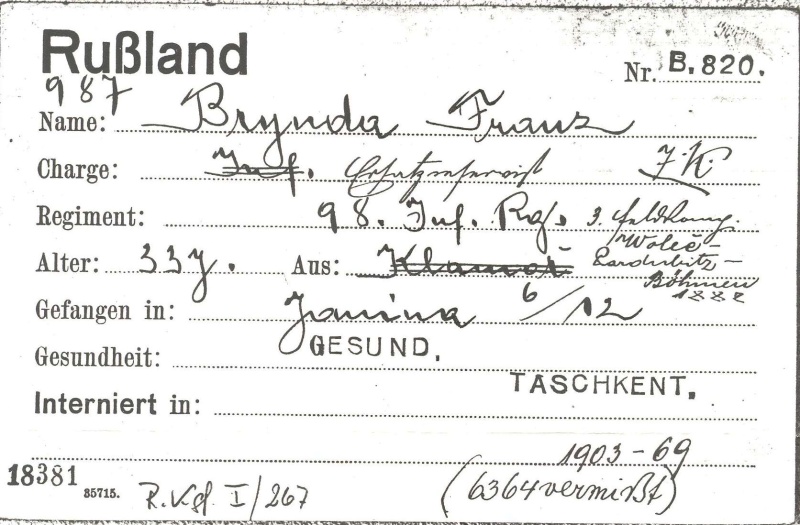 Rußland
Nr. B. 820.
987
Name: Brynda Franz
Charge: Inf. Ersatzreservist J.K.
Regiment: 98. Inf. Rg. 3. Feldkomp.
Alter: 33 J. Aus: Wolec-
Pardubitz-
Böhmen
1882
Gefangen in: Janina 6/12
Gesundheit: GESUND.
TASCHKENT.
Interniert in:
1903-69
18381 85715. R. Kgf. I/267 (6364 vermißt)